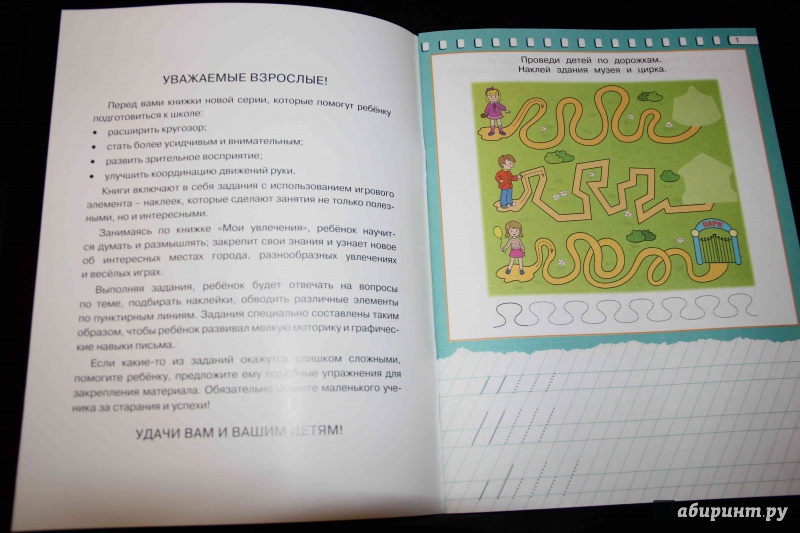 УВАЖАЕМЫЕ ВЗРОСЛЫЕ!
Перед вами книжки новой серии, которые помогут ребёнку
подготовиться к школе:
• расширить кругозор;
• стать более усидчивым и внимательным;
• развить зрительное восприятие;
• улучшить координацию движений руки.
Книги включают в себя задания с использованием игрового
элемента – наклеек, которые сделают занятия не только полез-
ными, но и интересными.
Занимаясь по книжке «Мои увлечения», ребёнок научит-
ся думать и размышлять; закрепит свои знания и узнает новое
об интересных местах города, разнообразных увлечениях
и весёлых играх.
Выполняя задания, ребёнок будет отвечать на вопросы
по теме, подбирать наклейки, обводить различные элементы
по пунктирным линиям. Задания специально составлены таким
образом, чтобы ребёнок развивал мелкую моторику и графичес-
кие навыки письма.
Если какие-то из заданий окажутся слишком сложными,
помогите ребёнку, предложите ему упражнения для
закрепления материала. Обязательно маленького уче-
ника за старания и успехи!
УДАЧИ ВАМ И ВАШИМ ДЕТЯМ!
1
Проведи детей по дорожкам.
Наклей здания музея и цирка.
ПАРК
абиринт.ру